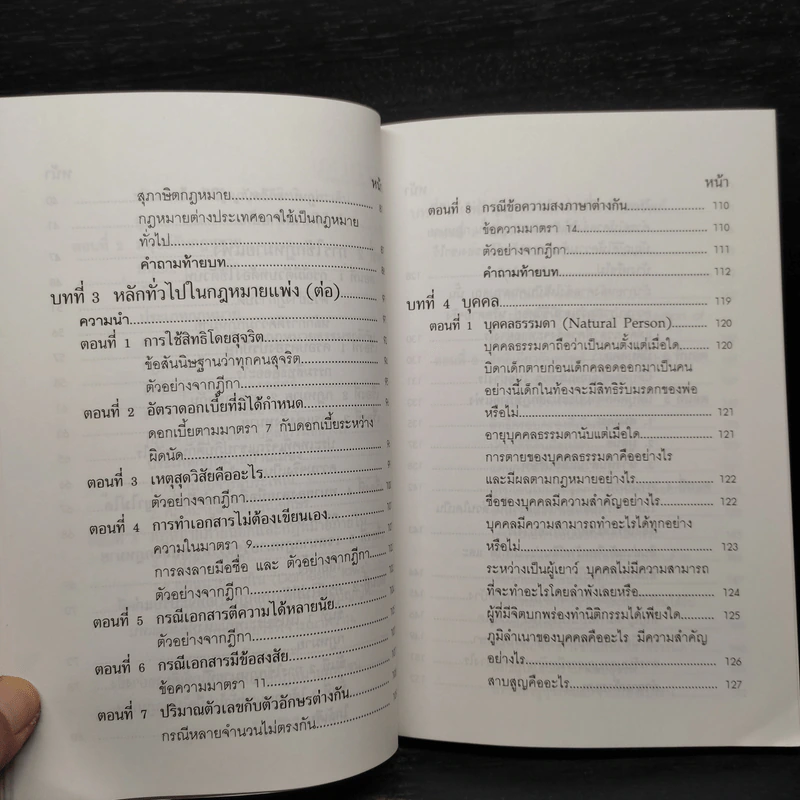 สุภาษิตกฎหมาย
กฎหมายต่างประเทศอาจใช้เป็นกฎหมาย
ทั่วไป
คำถามท้ายบท
บทที่ 3 หลักทั่วไปในกฎหมายแพ่ง (ต่อ)
ความนำ
ตอนที่ 1 การใช้สิทธิโดยสุจริต
ข้อสันนิษฐานว่าทุกคนสุจริต
ตัวอย่างจากฎีกา
ตอนที่ 2 อัตราดอกเบี้ยที่มิได้กำหนด
ดอกเบี้ยตามมาตรา 7 กับดอกเบี้ยระหว่าง
ผิดนัด
ตอนที่ 3 เหตุสุดวิสัยคืออะไร
ตัวอย่างจากฎีกา
ตอนที่ 4 การทำเอกสารไม่ต้องเขียนเอง
ความในมาตรา 9
การลงลายมือชื่อ และ ตัวอย่างจากฎีกา
ตัวอย่างจากฎีกา
ตอนที่ 5 กรณีเอกสารตีความได้หลายนัย
ตัวอย่างจากฎีกา
ตอนที่ 6 กรณีเอกสารมีข้อสงสัย
ข้อความมาตรา 11
ตอนที่ 7 ปริมาณตัวเลขกับตัวอักษรต่างกัน
กรณีหลายจำนวนไม่ตรงกัน
หน้า
ตอนที่ 8 กรณีข้อความสองภาษาต่างกัน 110
ข้อความมาตรา 14 110
ตัวอย่างจากฎีกา 111
คำถามท้ายบท 112
บทที่ 4 บุคคล 119
ตอนที่ 1 บุคคลธรรมดา (Natural Person) 120
บุคคลธรรมดาถือว่าเป็นคนตั้งแต่เมื่อใด 120
บิดาเด็กตายก่อนเด็กคลอดออกมาเป็นคน
อย่างนี้เด็กในท้องจะมีสิทธิรับมรดกของพ่อ
หรือไม่ 121
อายุบุคคลธรรมดานับแต่เมื่อใด 121
การตายของบุคคลธรรมดาคืออย่างไร
และมีผลตามกฎหมายอย่างไร 122
ชื่อของบุคคลมีความสำคัญอย่างไร 122
บุคคลมีความสามารถทำอะไรได้ทุกอย่าง
หรือไม่ 123
ระหว่างเป็นผู้เยาว์ บุคคลไม่มีความสามารถ
ที่จะทำอะไรโดยลำพังเลยหรือ 124
ผู้ที่มีจิตบกพร่องทำนิติกรรมได้เพียงใด 125
ภูมิลำเนาของบุคคลคืออะไร มีความสำคัญ
อย่างไร 126
สาบสูญคืออะไร 127